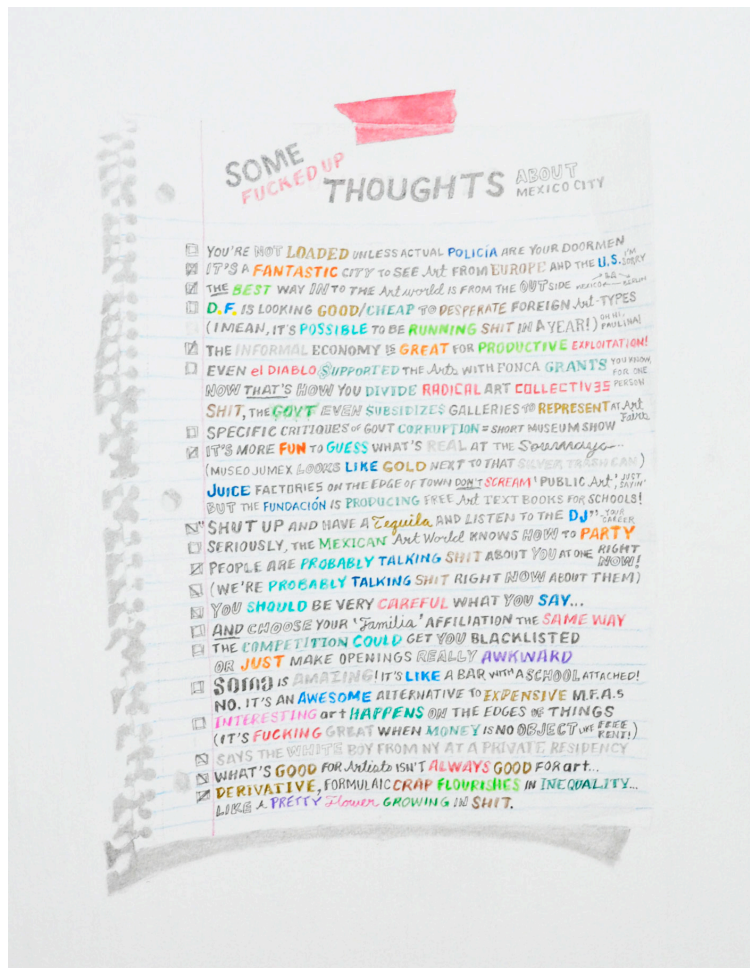 SOME
FUCKED UP
THOUGHTS ABOUT
MEXICO CITY
YOU'RE NOT LOADED UNLESS ACTUAL POLICÍA ARE YOUR DOORMEN
IT'S A FANTASTIC CITY TO SEE Art FROM EUROPE AND THE U.S. I'M SORRY
THE BEST WAY IN TO THE Art world IS FROM THE OUTSIDE
D.F. IS LOOKING GOOD/CHEAP TO DESPERATE FOREIGN Art-TYPES
(I MEAN, IT'S POSSIBLE TO BE RUNNING SHIT IN A YEAR!) OH HI, PAULINA!
THE INFORMAL ECONOMY IS GREAT FOR PRODUCTIVE EXPLOITATION!
EVEN el DIABLO SUPPORTED THE Arts WITH FONCA GRANTS YOU KNOW, FOR ONE PERSON
NOW THAT'S HOW YOU DIVIDE RADICAL ART COLLECTIVES
SHIT, THE GOVT EVEN SUBSIDIZES GALLERIES TO REPRESENT AT Art Fairs
SPECIFIC CRITIQUES OF GOVT CORRUPTION = SHORT MUSEUM SHOW
IT'S MORE FUN TO GUESS WHAT'S REAL AT THE Soumaya...
(MUSEO JUMEX LOOKS LIKE GOLD NEXT TO THAT SILVER TRASH CAN)
JUICE FACTORIES ON THE EDGE OF TOWN DON'T SCREAM 'PUBLIC Art', JUST SAYIN'
BUT THE FUNDACIÓN IS PRODUCING FREE Art TEXT BOOKS FOR SCHOOLS!
"SHUT UP AND HAVE A Tequila AND LISTEN TO THE DJ", YOUR CAREER
SERIOUSLY, THE MEXICAN Art World KNOWS HOW TO PARTY
PEOPLE ARE PROBABLY TALKING SHIT ABOUT YOU AT ONE RIGHT NOW!
(WE'RE PROBABLY TALKING SHIT RIGHT NOW ABOUT THEM)
YOU SHOULD BE VERY CAREFUL WHAT YOU SAY...
AND CHOOSE YOUR 'Familia' AFFILIATION THE SAME WAY
THE COMPETITION COULD GET YOU BLACKLISTED
OR JUST MAKE OPENINGS REALLY AWKWARD
SOMA IS AMAZING! IT'S LIKE A BAR WITH A SCHOOL ATTACHED!
NO. IT'S AN AWESOME ALTERNATIVE TO EXPENSIVE M.F.A.S
INTERESTING art HAPPENS ON THE EDGES OF THINGS
(IT'S FUCKING GREAT WHEN MONEY IS NO OBJECT LIKE FREE RENT!)
SAYS THE WHITE BOY FROM NY AT A PRIVATE RESIDENCY
WHAT'S GOOD FOR Artists ISN'T ALWAYS GOOD FOR art...
DERIVATIVE, FORMULAIC CRAP FLOURISHES IN INEQUALITY...
LIKE A PRETTY Flower GROWING IN SHIT.